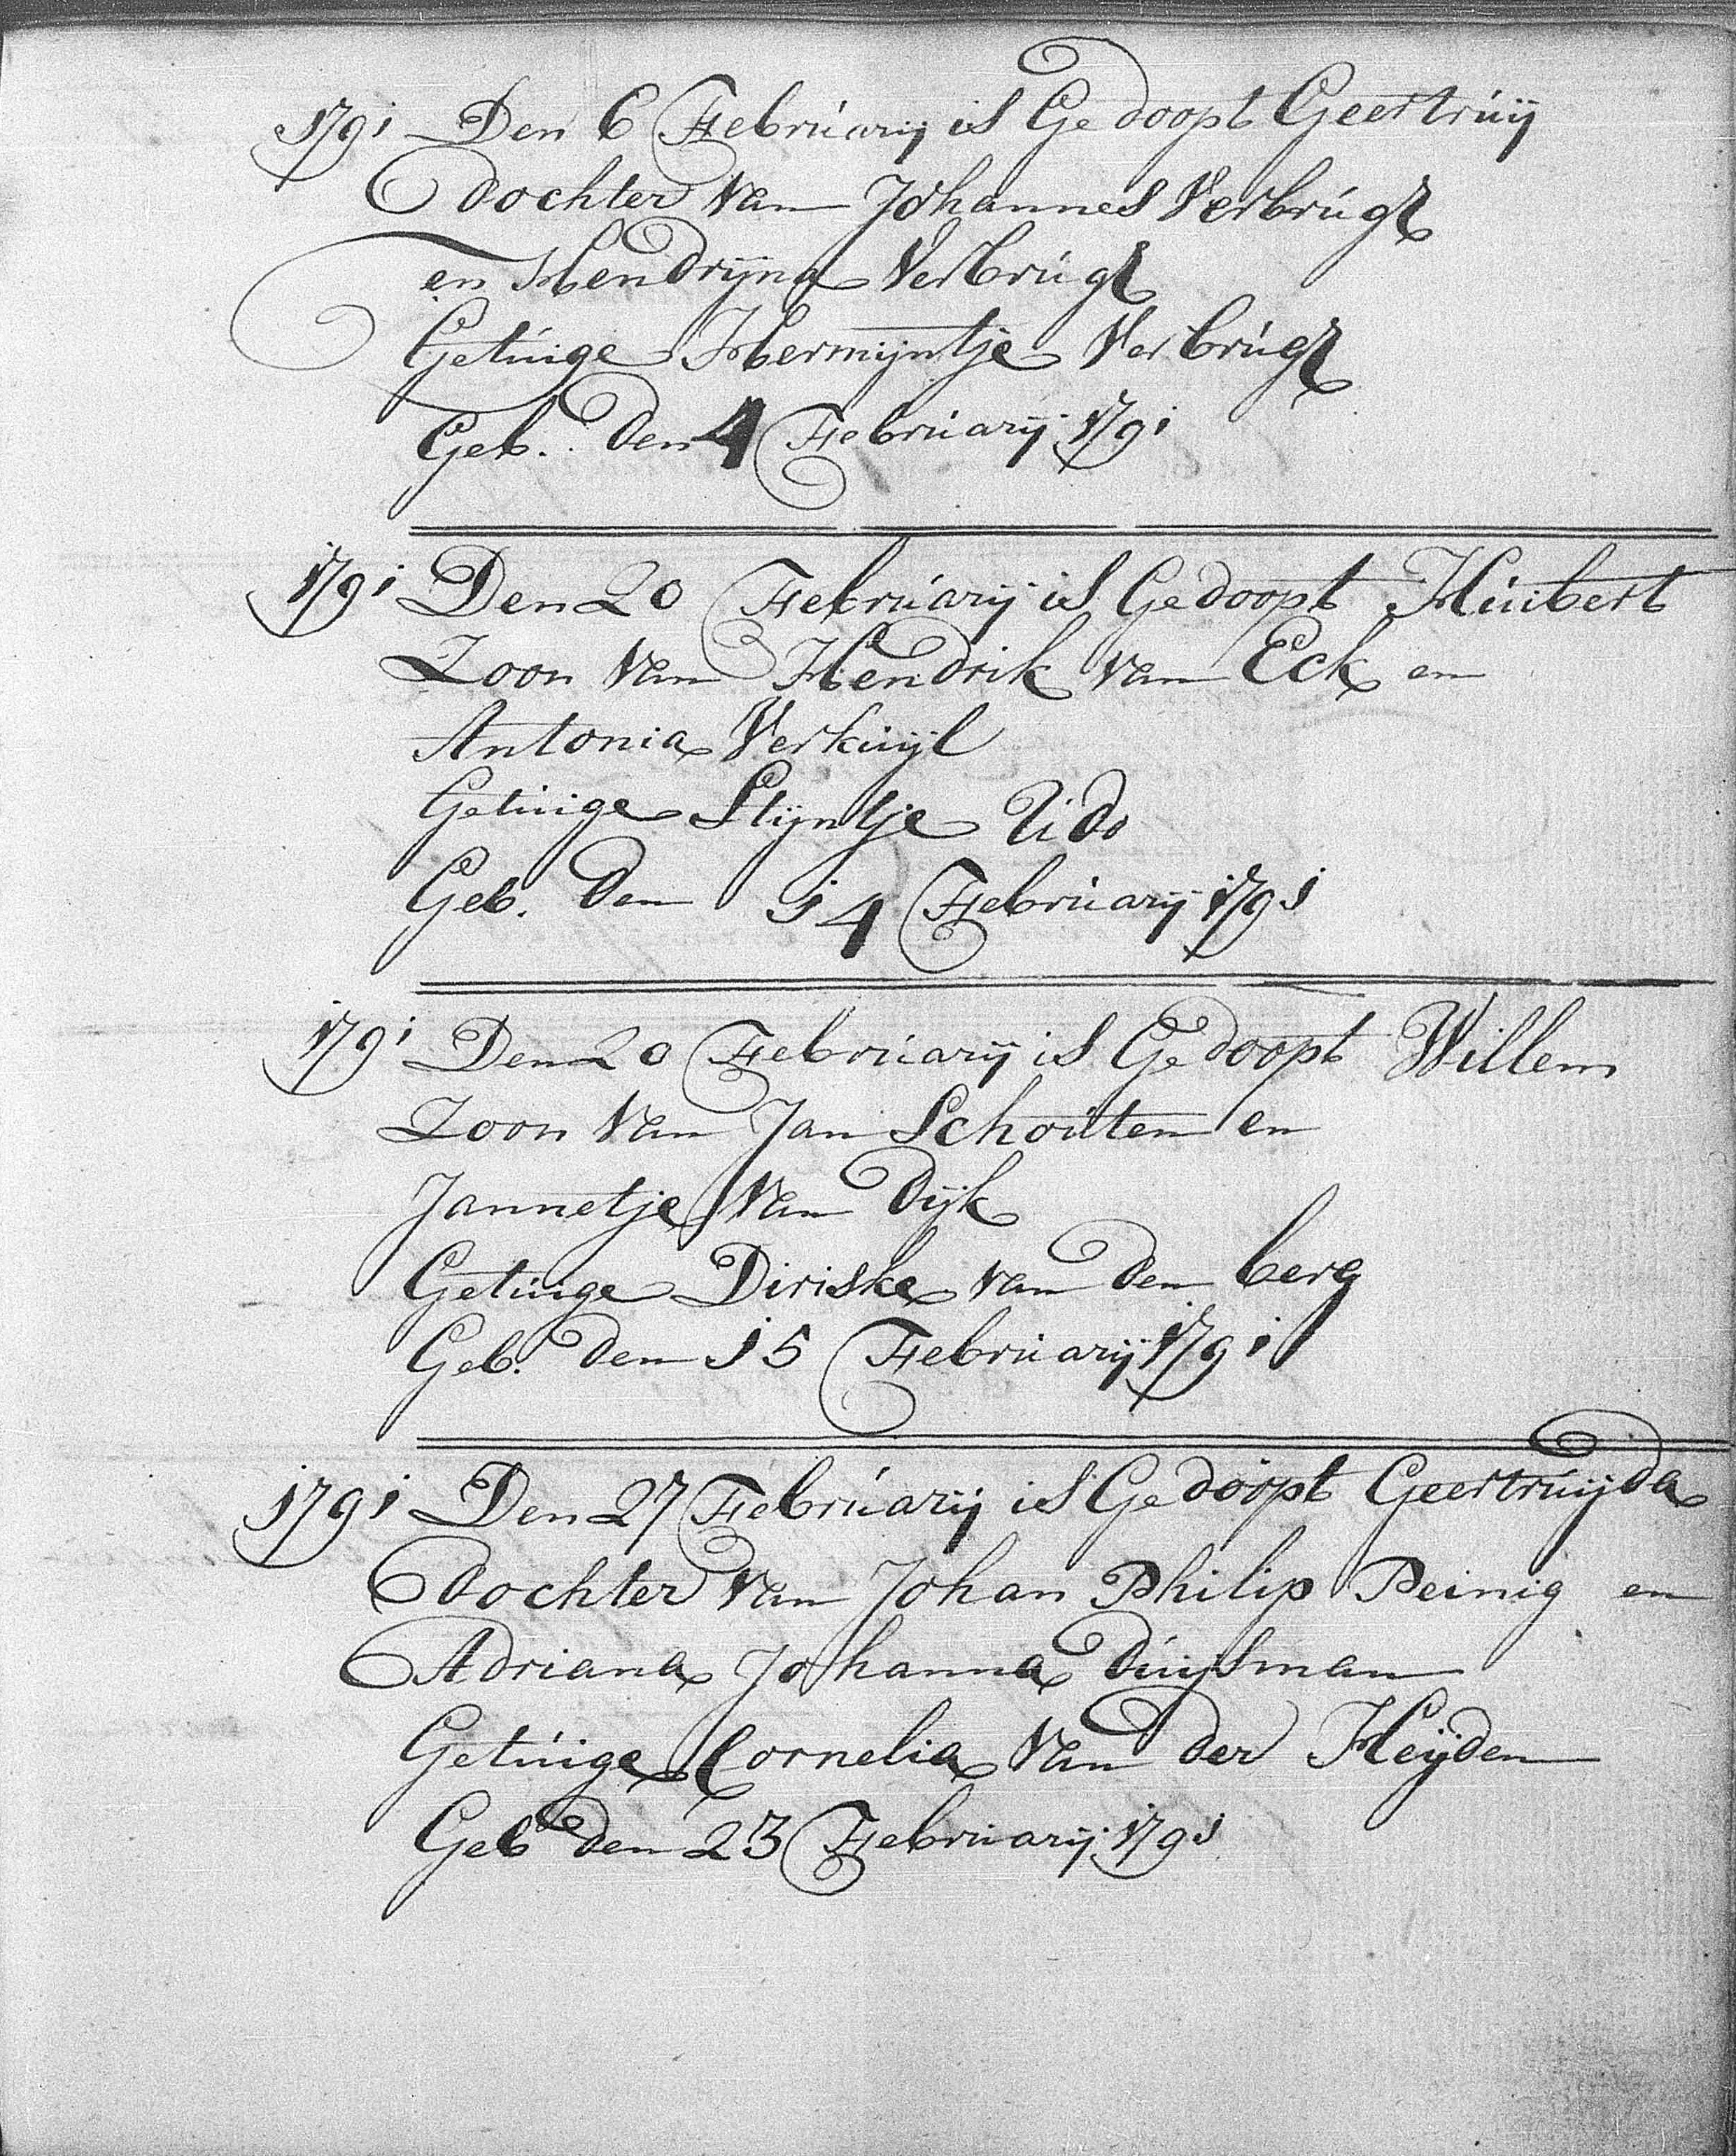 1791 Den 6 Februarij is Gedoopt Geertruij
dochter van Johannes Verbrugt
en Hendrijna Verbrugt
Getuige Hermijntje Verbrugt
Geb. den 4 Februarij 1791
1791 Den 20 Februarij is Gedoopt Huibert
Zoon van Hendrik van Eck en
Antonia Verkuijl
Getuige Stijntje Udo
Geb. den 14 Februarij 1791
1791 Den 20 Februarij is Gedoopt Willem
Zoon van Jan Schouten en
Jannetje van Dijk
Getuige Diriske van den berg
Geb. den 15 Februarij 1791
1791 Den 27 Februarij is Gedoopt Geertruijda
dochter van Johan Philip Peinig en
Adriana Johanna duijsman
Getuige Cornelia van der Heijden
Geb den 23 Februarij 1791